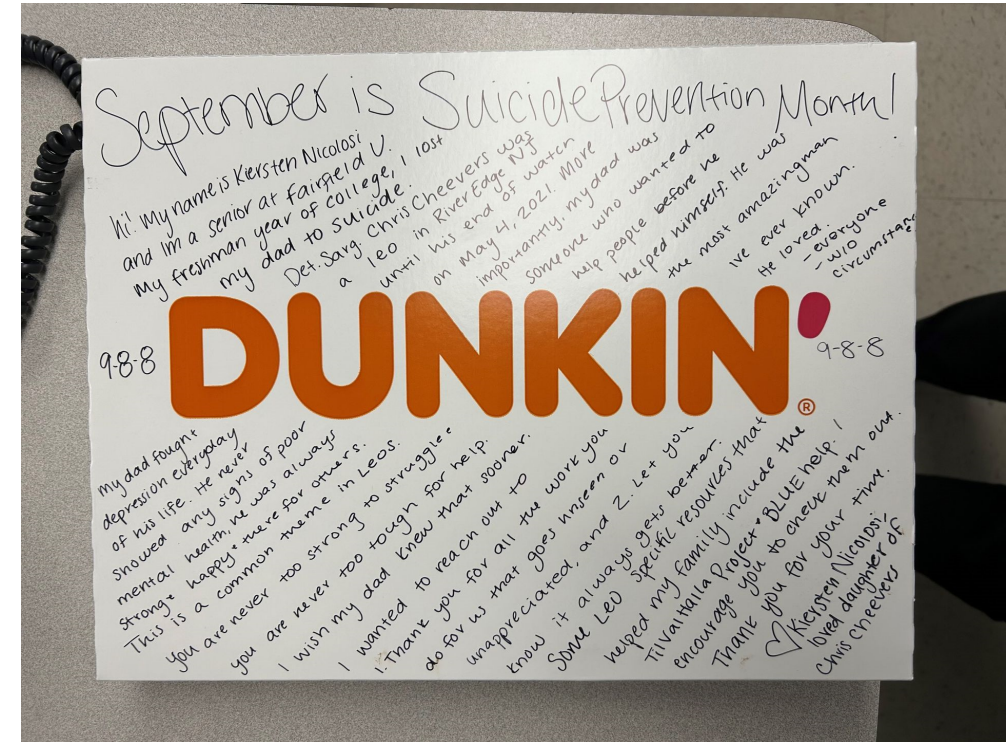 September is Suicide Prevention Month!
Hi! My name is Kiersten Nicolosi
and im a senior at fairfield U.
My freshman year of college, I lost
my dad to suicide.
Det. Sarg. Chris Cheevers was
a leo in River Edge NJ
until his end of watch
on May 4, 2021. More
importantly, my dad was
someone who wanted to
help people before he
helped himself. He was
the most amazing man
ive ever known.
He loved.
- everyone
- w/o
circumstance
9-8-8
DUNKIN'
®
9-8-8
my dad fought
depression everyday
of his life. He never
showed any signs of poor
mental health, he was always
strong + happy + there for others.
This is a common theme in Leos.
you are never too strong to struggle +
you are never too tough for help.
I wish my dad knew that sooner.
I wanted to reach out to
1. Thank you for all the work you
do for us that goes unseen or
unappreciated, and 2. Let you
know it always gets better.
Some Leo specific resources that
helped my family include the
TilValhalla Project + BLUE help. I
encourage you to check them out.
Thank you for your time.
♡ Kiersten Nicolosi,
loved daughter of
Chris Cheevers